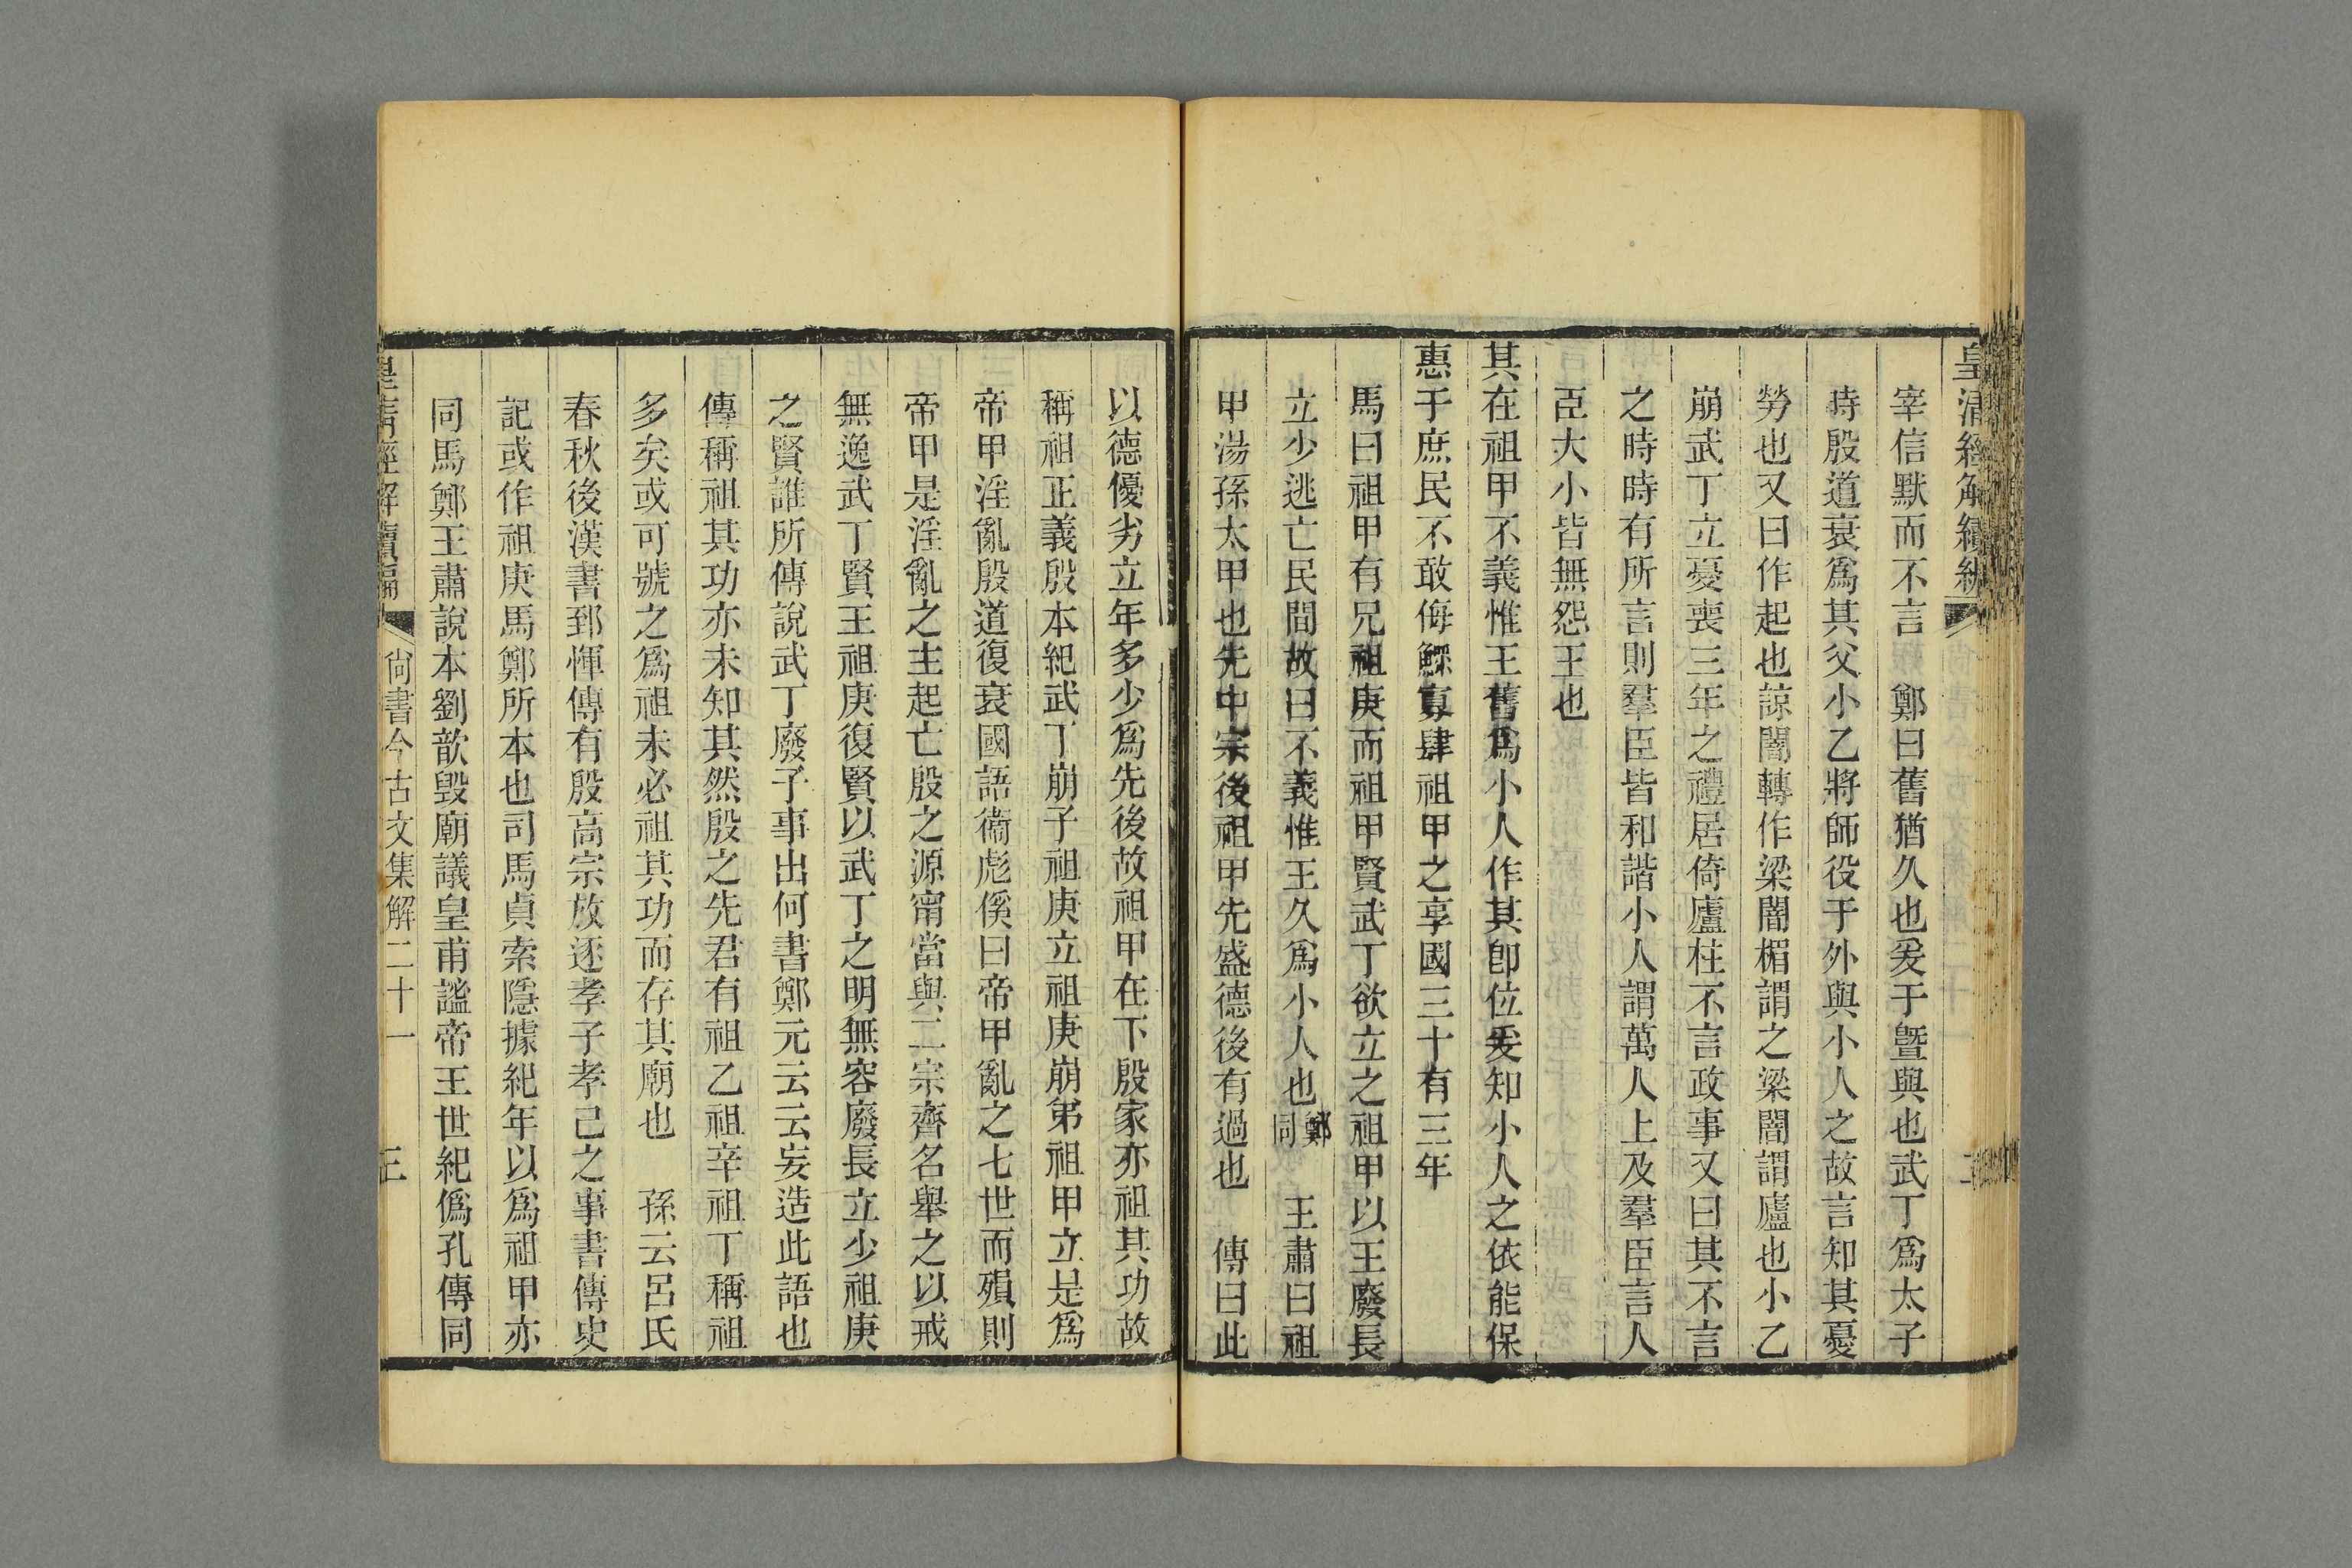 皇清經解續編
宰信默而不言　鄭曰舊猶久也爰于曁與也武丁爲太子
時殷道衰爲其父小乙將師役于外與小人之故言知其憂
勞也又曰作起也諒闇轉作梁闇楣謂之梁闇謂廬也小乙
崩武丁立憂喪三年之禮居倚廬柱不言政事又曰其不言
之時時有所言則羣臣皆和諧小人謂萬人上及羣臣言人
臣大小皆無怨王也
其在祖甲不義惟王舊爲小人作其卽位爰知小人之依能保
惠于庶民不敢侮鰥寡肆祖甲之享國三十有三年
馬曰祖甲有兄祖庚而祖甲賢武丁欲立之祖甲以王廢長
立少逃亡民間故曰不義惟王久爲小人也鄭同　王肅曰祖
甲湯孫太甲也先中宗後祖甲先盛德後有過也　傳曰此
以德優劣立年多少爲先後故祖甲在下殷家亦祖其功故
稱祖正義殷本紀武丁崩子祖庚立祖庚崩弟祖甲立是爲
帝甲淫亂殷道復衰國語衞彪傒曰帝甲亂之七世而殞則
帝甲是淫亂之主起亡殷之源甯當與二宗齊名舉之以戒
無逸武丁賢王祖庚復賢以武丁之明無容廢長立少祖庚
之賢誰所傳說武丁廢子事出何書鄭元云云妄造此語也
傳稱祖其功亦未知其然殷之先君有祖乙祖辛祖丁稱祖
多矣或可號之爲祖未必祖其功而存其廟也　孫云呂氏
春秋後漢書郅惲傳有殷高宗放逐孝子孝己之事書傳史
記或作祖庚馬鄭所本也司馬貞索隱據紀年以爲祖甲亦
同馬鄭王肅說本劉歆毀廟議皇甫謐帝王世紀僞孔傳同
皇淸經解續編　尙書今古文集解二十一　三